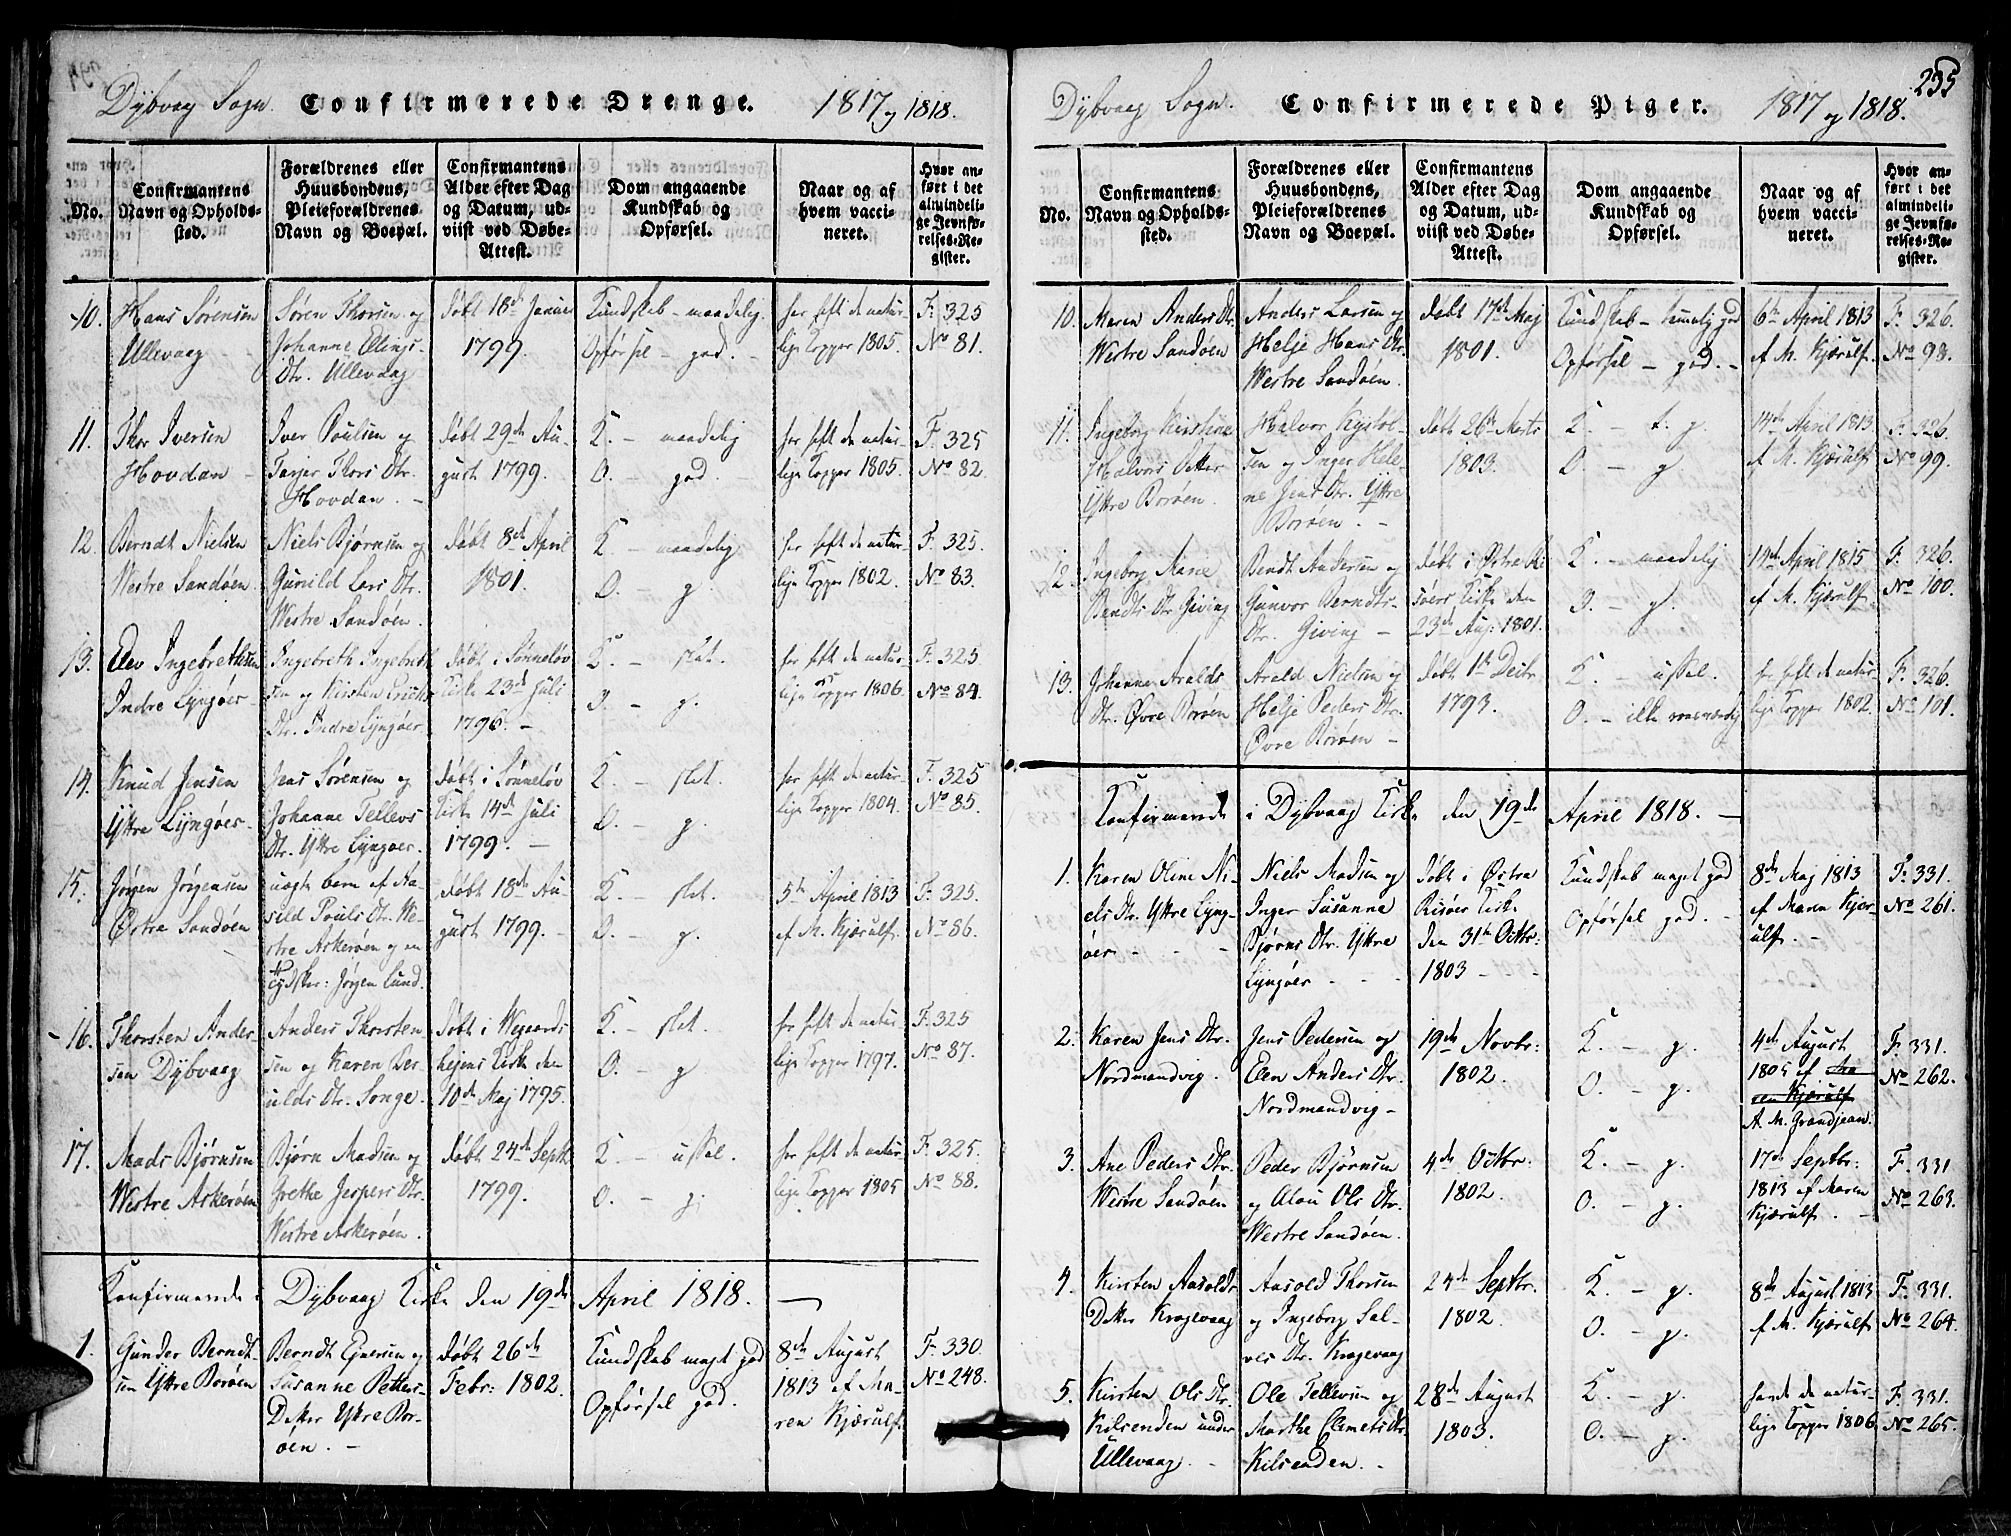 Dybvaag Sogn. Confirmerede Drenge. 1817 og 1818.
No.
Confirmantens
Navn og Opholds-
sted.
Forældrenes eller
Huusbondens,
Pleieforældrenes
Navn og Boepæl.
Confirmantens
Alder efter Dag
og Datum, ud-
viist ved Døbe-
Attest.
Dom angaaende
Kundskab og
Opførsel.
Naar og af
hvem vacci-
neret.
Hvor an-
ført i det
almindeli-
ge Jevnfø-
relses-Re-
gister.
10.
Hans Sørensen
Ullevaag
Søren Thorsen og
Johanne Ellings
Dtr. Ullevaag
døbt 18de Januar
1799.
Kundskab - maadelig.
Opførsel - god. -
har haft de natur-
lige Kopper 1805.
F. 325
No 81.
11.
Thor Iversen
Hovdan -
Iver Poulsen og
Tarjer Thors Dtr.
Hovdan. -
døbt 29de Au-
gust 1799.
K. - maadelig
O. - god.
har haft de natur-
lige Kopper 1805.
F. 325
No 82.
12.
Berndt Nielsen
Westre Sandøen
Niels Bjørnsen og
Gunild Lars Dtr.
Westre Sandøen.
døbt 8de April
1801.
K. - maadelig
O. - g.
har haft de natur-
lige Kopper 1802.
F. 325.
No 83.
13.
Elev Ingebrethsen
Indre Lyngøer
Ingebreth Ingebreth-
sen og Kirsten Erichs
Dtr. Indre Lyngøer
døbt i Sønneløv
Kirke 23de Juli
1796. -
K. - slet.
O. - g.
har haft de natur-
lige Kopper 1806.
F. 325
No 84.
14.
Knud Jensen
Yttre Lyngøer
Jens Sørensen og
Johanne Tellevs
Dtr. Yttre Lyngøer.
døbt i Sønneløv
Kirke 14de Juli
1799. -
K. - slet.
O. - g.
har haft de natur-
lige Kopper 1804.
F. 325
No 85.
15.
Jørgen Jørgensen
Østre Sandøen
uægte barn af Aa-
sild Pouls Dtr. We-
stre Askerøen og en
Tydsker: Jørgen Lund.
døbt 18de Au-
gust 1799. -
K. - slet.
O. - g.
5te April 1813
af M. Kjærulf.
F. 325.
No 86.
16.
Thorsten Ander-
sen Dybvaag
Anders Thorsten-
sen og Karen Her-
ulds Dtr. Songe.
døbt i Wegaards-
hejens Kirke den
10de Maj 1795.
K. - slet.
O. - g
har haft de natur-
lige Kopper 1797.
F. 325
No 87.
17.
Mads Bjørnsen
Westre Askerøen
Bjørn Madsen og
Grethe Jespers Dtr.
Westre Askerøen.
døbt 24de Septbr
1799.
K. - ussel.
O. - g.
har haft de natur-
lige Kopper 1805
F. 325.
No 88.
Konfirmerede i Dybvaag Kirke den 19de April 1818. -
1.
Gunder Berndt-
sen Yttre Borøen
Berndt Ejnersen og
Susanne Petters-
Datter Yttre Bor-
øen. -
døbt 26de
Febr: 1802.
Kundskab meget god
Opførsel god.
8de August
1813 af Ma-
ren Kjærulf
F. 330.
No 248.
235
Dybvaag Sogn. Confirmerede Piger. 1817 og 1818.
No.
Confirmantens
Navn og Opholds-
sted.
Forældrenes eller
Huusbondens,
Pleieforældrenes
Navn og Boepæl.
Confirmantens
Alder efter Dag
og Datum, ud-
viist ved Døbe-
Attest.
Dom angaaende
Kundskab og
Opførsel.
Naar og af
hvem vacci-
neret.
Hvor an-
ført i det
almindeli-
ge Jevnfø-
relses-Re-
gister.
10.
Maren Anders Dtr.
Westre Sandøen
Anders Larsen og
Helje Hans Dtr.
Westre Sandøen.
døbt 17de Maj
1801.
Kundskab - temmelig god
Opførsel - god. -
6te April 1813
af M. Kjærulf.
F. 326.
No 98.
11.
Ingeborg Kirstine
Halvors Datter
Yttre Borøen.
Halvor Kystol-
sen og Inger Hele-
ne Jens Dtr. Yttre
Borøen. -
døbt 26de Marts
1803.
K. - t. g.
O. - g.
14de April 1813.
af M. Kjærulf
F. 326.
No 99.
12.
Ingeborg Marie
Bendts Dtr Giving
Bendt Andersen og
Gunvor Berndts-
Dtr. Giving -
døbt i Østre Ri-
søers Kirke den
23de Aug: 1801.
K. - maadelig
O. - g.
14de April 1815
af M. Kjærulf
F. 326.
No 100.
13.
Johanne Aralds
Dtr. Øvre Borøen
Arald Nielsen og
Helje Peders Dtr.
Øvre Borøen -
døbt 1te Decbr.
1793.
K. - ussel.
O. - ikke roesværdig
har haft de natur-
lige Kopper 1802.
F. 326.
No 101.
Konfirmerede i Dybvaag Kirke den 19de April 1818. -
1.
Karen Oline Ni-
els Dtr. Yttre Lyng-
øer - - -
Niels Madsen og
Inger Susanne
Bjørns Dtr. Yttre
Lyngøer - -
døbt i Østre
Risøer Kirke
den 31te Octbr:
1803 -
Kundskab meget god
Opførsel god. -
8de Maj 1813
af Maren Kjær-
ulf. -
F. 331.
No 261.
2.
Karen Jens Dtr.
Nordmandvig.
Jens Pedersen og
Elen Anders Dtr.
Nordmandvig -
19de Novbr:
1802.
K. - g.
O. - g.
4de August
1805 af Ma-
ren Kjærulf
A. M. Grandjean.
F. 331.
No 262.
3.
Ane Peders Dtr.
Westre Sandøen
Peder Bjørnsen
og Alou Ols Dtr.
Westre Sandøen.
4de Octbr:
1802.
K. - g.
O. - g.
17de Septbr:
1813 af Maren
Kjærulf -
F. 331
No 263.
4.
Kirsten Aasolds
Datter Kragevaag
Aasold Thorsen
og Ingeborg Sal-
ves Dtr. Kragevaag
24de Septbr.
1802.
K. - g.
O. - g.
8de August 1813
af M. Kjærulf
F. 331.
No 264.
5.
Kirsten Ols Dtr.
Kilsenden under
Ullevaag. -
Ole Tellevsen og
Marthe Clemets Dtr.
Kilsenden. -
28de August
1803.
K. - g.
O. - g.
havde de natur-
lige Kopper 1806
F. 331.
No 265.